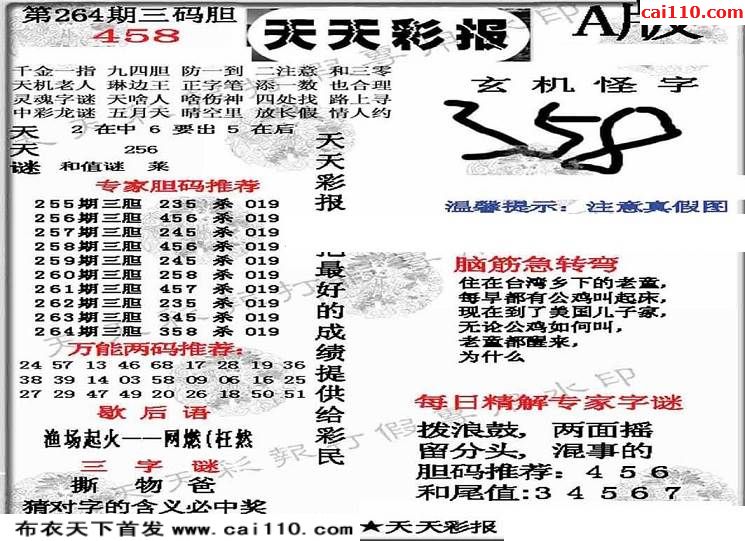 第264期三码胆
458
天天彩报
A版
cai110.com
千金一指 九四胆 防一到 二注意 和三零
天机老人 琳边王 正字笔 添一数 也合理
灵魂字谜 天啥人 啥伤神 四处找 路上寻
中彩龙谜 五月天 晴空里 放长假 情人约
天天谜
2 在中 6 要出 5 在后
256
和值谜 莱
专家胆码推荐
255期三胆 235 杀 019
256期三胆 456 杀 019
257期三胆 245 杀 019
258期三胆 456 杀 019
259期三胆 245 杀 019
260期三胆 258 杀 019
261期三胆 457 杀 019
262期三胆 235 杀 019
263期三胆 345 杀 019
264期三胆 358 杀 019
万能两码推荐:
24 57 13 46 68 17 28 19 36
38 39 14 03 58 09 06 16 25
27 29 47 49 20 26 18 50 51
歇后语
渔场起火——网燃(枉然
三字谜
撕 物 爸
猜对字的含义必中奖
天天彩报
把最好的成绩提供给彩民
玄机怪字
358
温馨提示: 注意真假图
脑筋急转弯
住在台湾乡下的老童,
每早都有公鸡叫起床,
现在到了美国儿子家,
无论公鸡如何叫,
老童都醒来,
为什么
每日精解专家字谜
拨浪鼓, 两面摇
留分头, 混事的
胆码推荐: 4 5 6
和尾值:3 4 5 6 7
布衣天下首发 www.cai110.com
★天天彩报